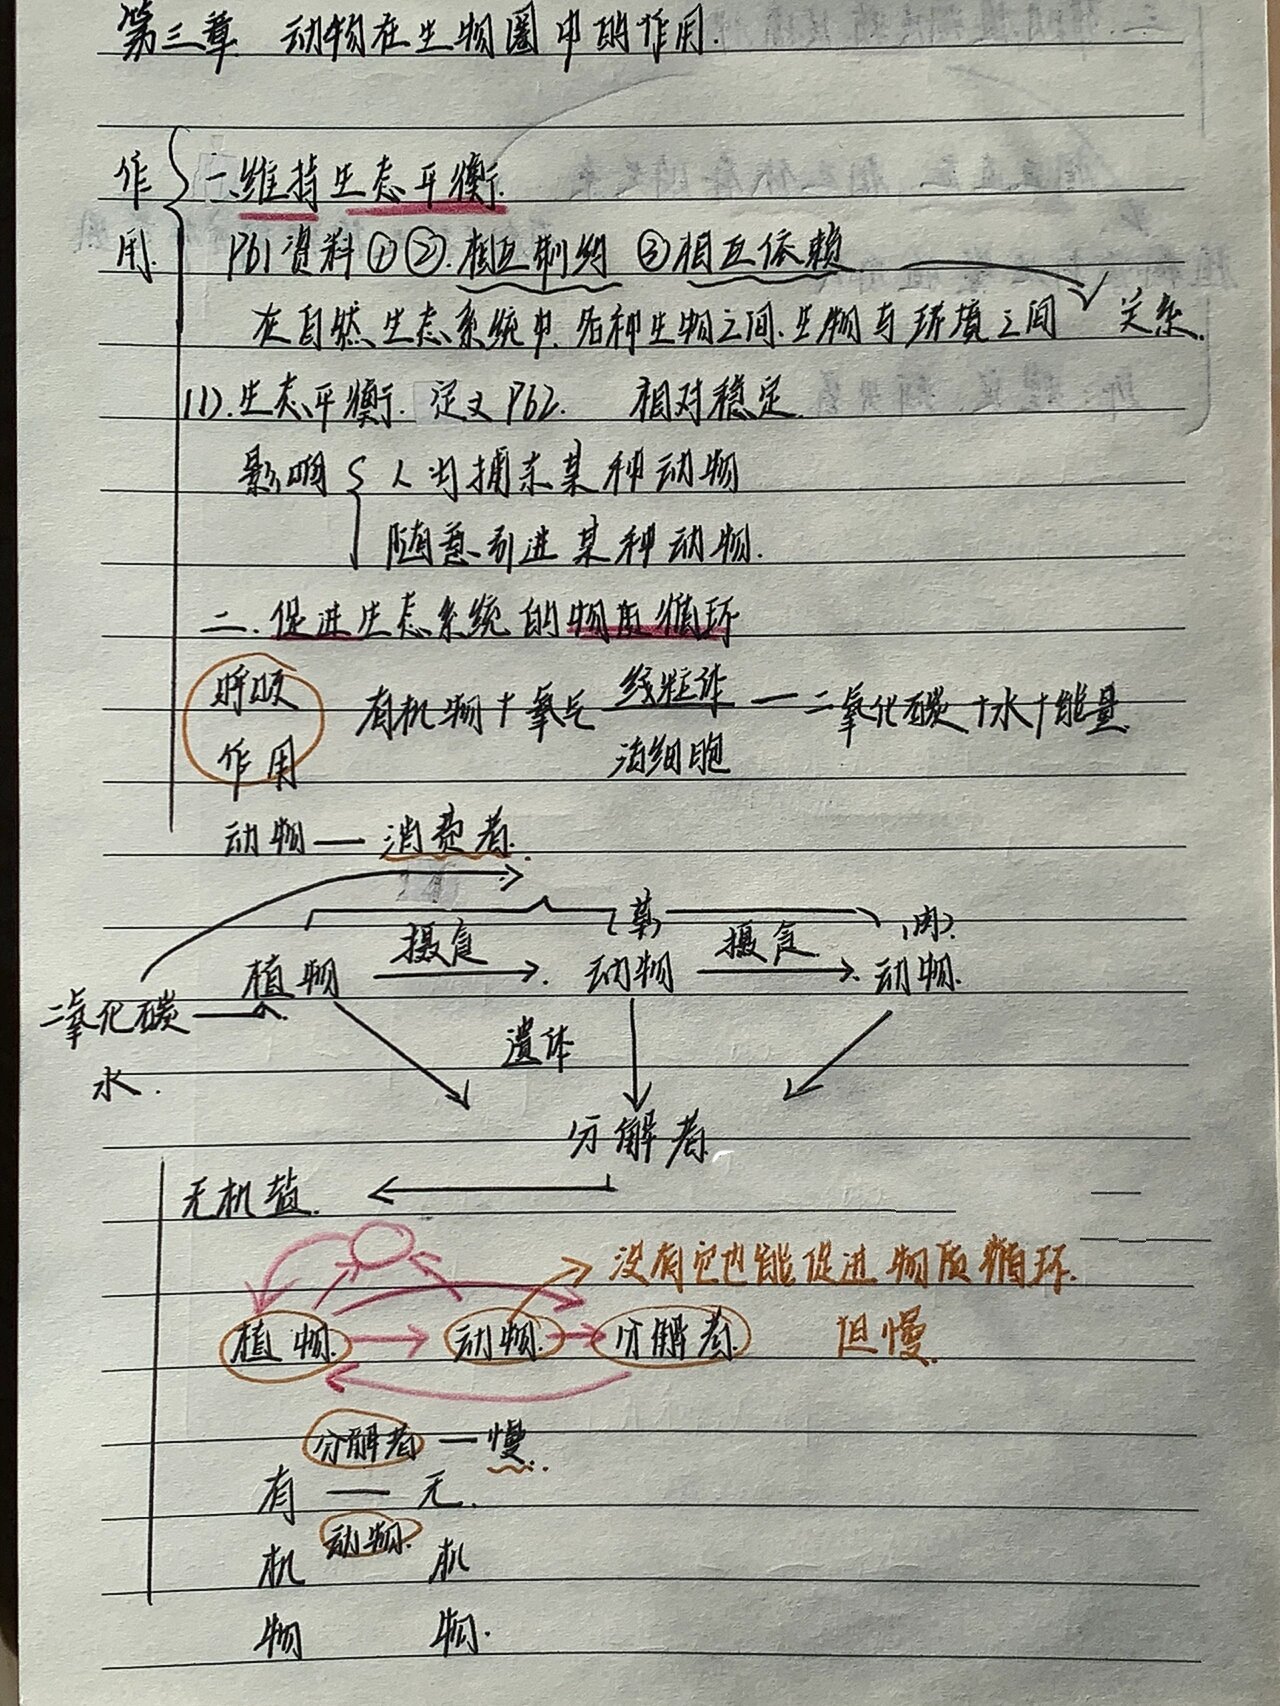 第三章 动物在生物圈中的作用.
作用
一、维持生态平衡.
P61资料①②.相互制约 ③相互依赖
在自然生态系统中.各种生物之间、生物与环境之间 关系.
(1).生态平衡.定义P62. 相对稳定.
影响 { 人为捕杀某种动物
随意引进某种动物.
二.促进生态系统的物质循环
呼吸作用 有机物+氧气 线粒体 — 二氧化碳+水+能量
活细胞
动物—消费者.
(草) (肉).
植物 摄食 动物 摄食 动物.
二氧化碳
水.
遗体
分解者.
无机盐.
没有它也能促进物质循环.
植物. 动物. 分解者. 但慢.
分解者—慢.
有 — 无.
动物.
机 机
物 物.